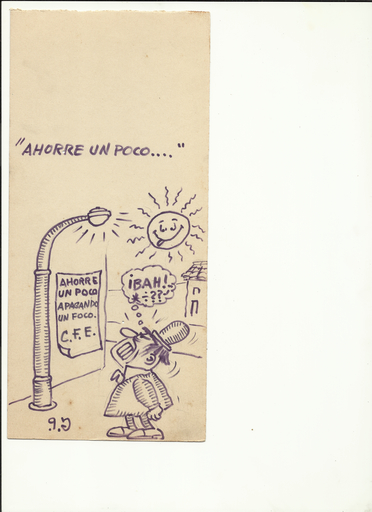 "AHORRE UN POCO...."
AHORRE
UN POCO
APAGANDO
UN FOCO.
C.F.E.
¡BAH!
*=??